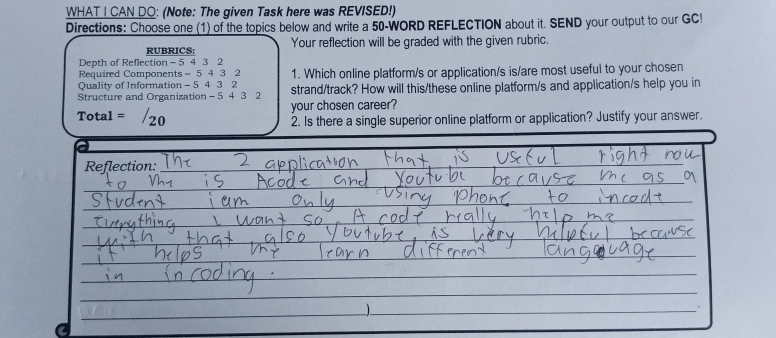 WHAT I CAN DO: (Note: The given Task here was REVISED!)
Directions: Choose one (1) of the topics below and write a 50-WORD REFLECTION about it. SEND your output to our GC!
Your reflection will be graded with the given rubric.
RUBRICS:
Depth of Reflection – 5 4 3 2
Required Components – 5 4 3 2
Quality of Information – 5 4 3 2
Structure and Organization – 5 4 3 2
Total = /20
1. Which online platform/s or application/s is/are most useful to your chosen
strand/track? How will this/these online platform/s and application/s help you in
your chosen career?
2. Is there a single superior online platform or application? Justify your answer.
Reflection: The 2 application that is useful right now
to me is Acode and Youtube because me as a
Student i am only using phone to incode
Everything I want so A code really help me
with that also Youtube is very helpful because
it helps me learn different language
in incoding.